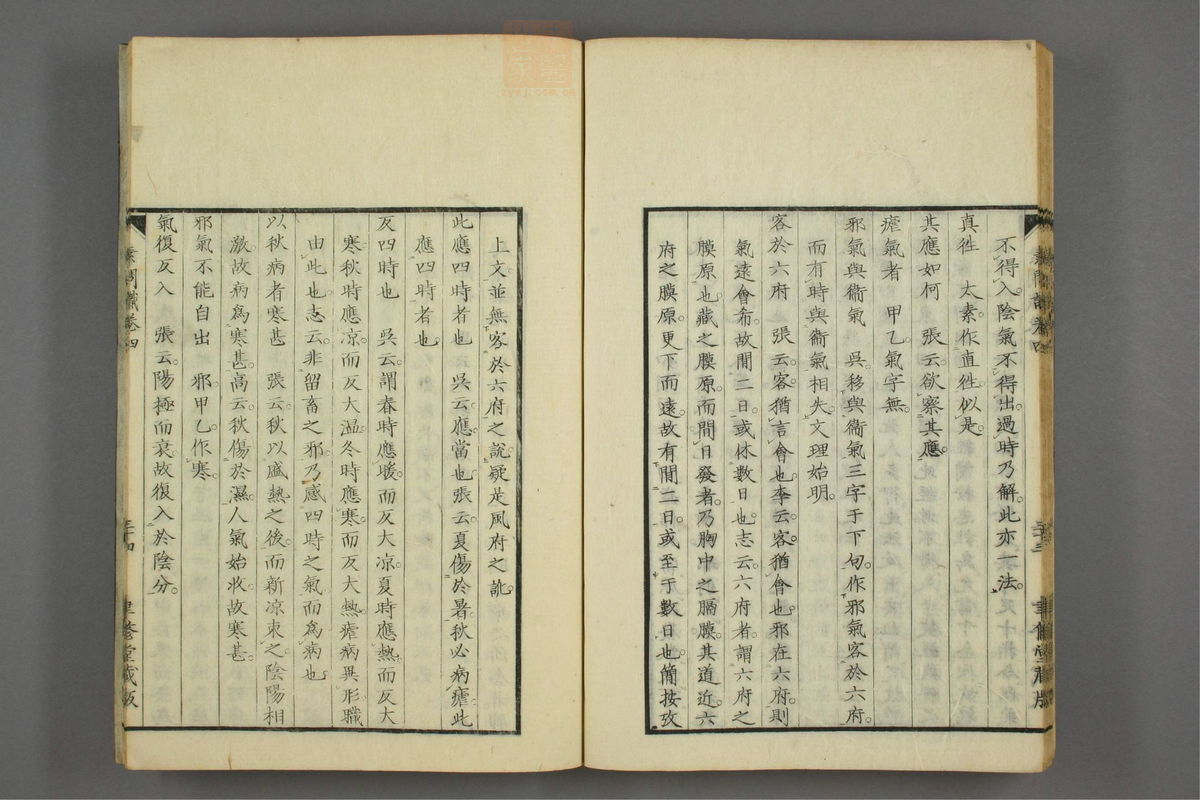 不得入陰氣不得出過時乃解此亦一法
真徃　太素作直徃似是
其應如何　張云欲察其應
瘧氣者　甲乙氣字無
邪氣與衞氣　吳移與衞氣三字于下句作邪氣客於六府
而有時與衞氣相失文理始明
客於六府　張云客猶言會也李云客猶會也邪在六府則
氣遠會希故間二日或休數日也志云六府者謂六府之
膜原也藏之膜原而間日發者乃胸中之膈膜其道近六
府之膜原更下而遠故有間二日或至于數日也簡按攷
上文並無客於六府之說疑是風府之訛
此應四時者也　吳云應當也張云夏傷於暑秋必病瘧此
應四時者也
反四時也　吳云謂春時應煖而反大凉夏時應熱而反大
寒秋時應凉而反大温冬時應寒而反大熱瘧病異形職
由此也志云非留畜之邪乃感四時之氣而爲病也
以秋病者寒甚　張云秋以盛熱之後而新凉束之陰陽相
激故病爲寒甚高云秋傷於濕人氣始收故寒甚
邪氣不能自出　邪甲乙作寒
氣復反入　張云陽極而衰故復入於陰分
素問識卷四
三十四
聿修堂藏版